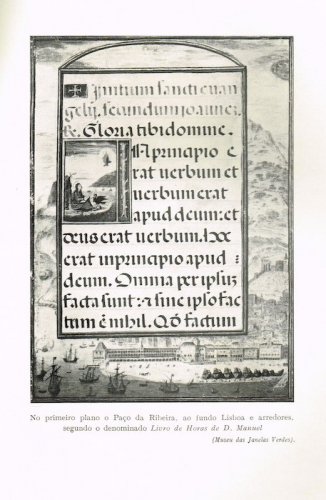 Initium sancti euan
gelij. secundum ioanne.
Gloria tibi domine.
In principio e
rat verbum et
verbum erat
apud deum: et
deus erat verbum. Hoc
erat in principio apud
deum. Omnia per ipsuz
facta sunt: & sine ipso fac
tum ē nihil. Qđ factum
No primeiro plano o Paço da Ribeira, ao fundo Lisboa e arredores,
segundo o denominado Livro de Horas de D. Manuel
(Museu das Janelas Verdes).